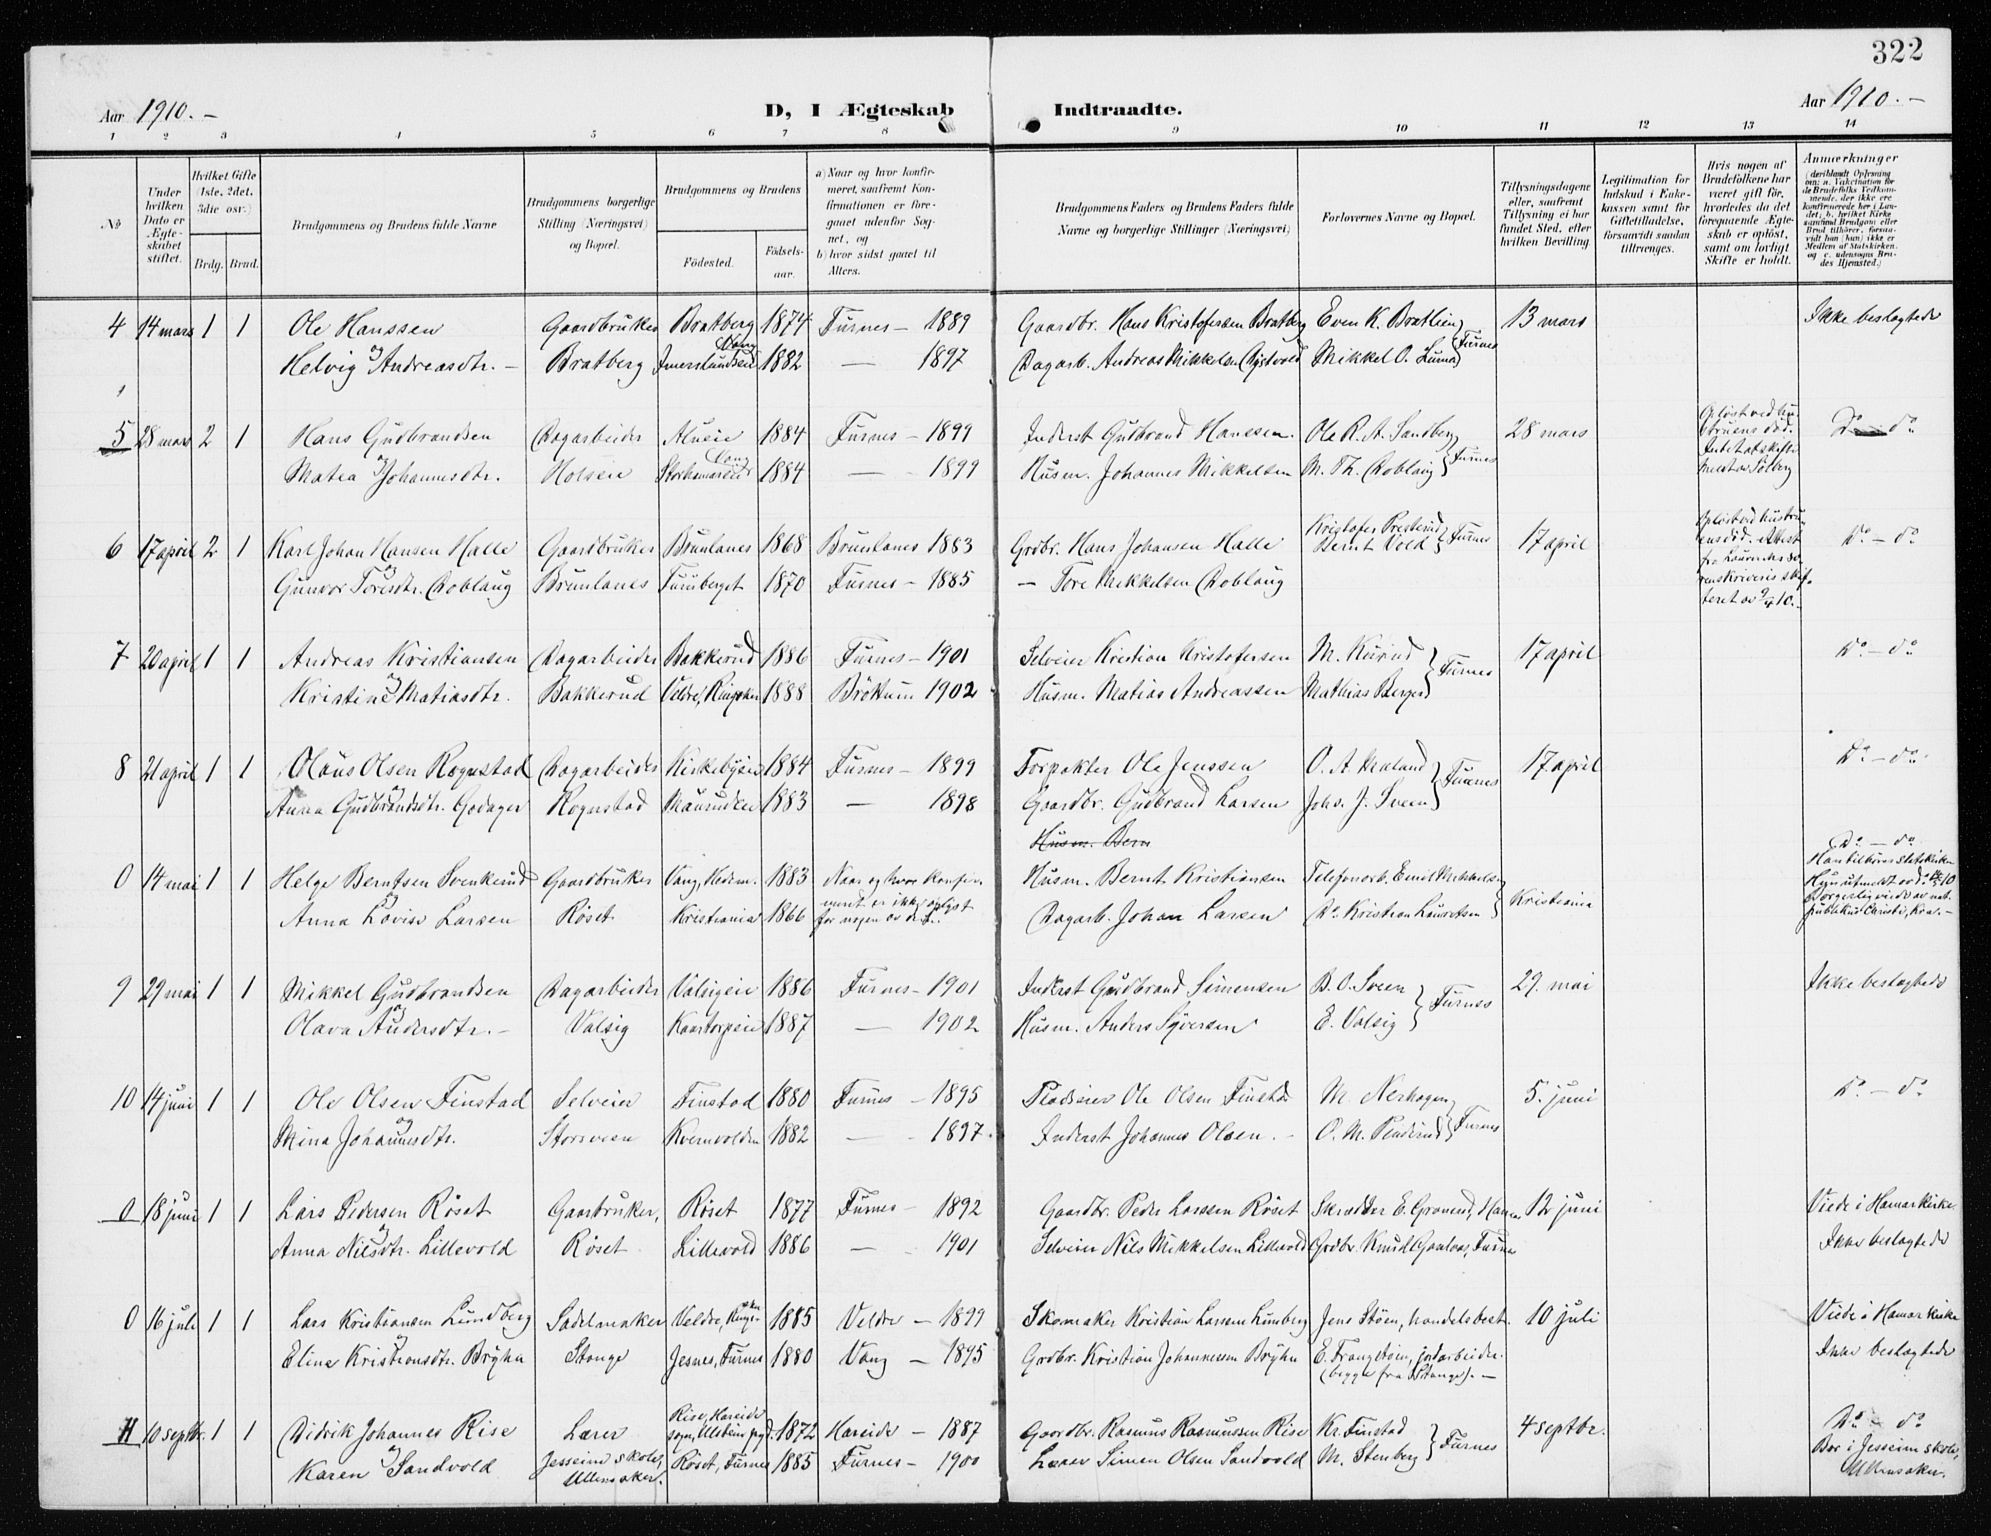 322
Aar 1910. –
D, I Ægteskab Indtraadte.
Aar 1910. –
1 2 3 4 5 6 7 8 9 10 11 12 13 14
No
Under hvilken Dato er Ægteskabet stiftet.
Hvilket Gifte (1ste, 2det, 3die osv.)
Brdg. Brud.
Brudgommens og Brudens fulde Navne
Brudgommens borgerlige Stilling (Næringsvei) og Bopæl.
Brudgommens og Brudens
Fødested.
Fødselsaar.
a) Naar og hvor konfirmeret, saafremt Konfirmationen er foregaaet udenfor Sognet, og
b) hvor sidst gaaet til Alters.
Brudgommens Faders og Brudens Faders fulde Navne og borgerlige Stillinger (Næringsvei)
Forlovernes Navne og Bopæl.
Tillysningsdagene eller, saafremt Tillysning ei har fundet Sted, efter hvilken Bevilling.
Legitimation for Indskud i Enkekassen samt for Giftetilladelse, forsaavidt saadan tiltrænges.
Hvis nogen af Brudefolkene har været gift før, hvorledes da det foregaaende Ægteskab er opløst, samt om lovligt Skifte er holdt.
Anmærkninger
(deriblandt Oplysning om: a. Vakcination for de Brudefolks Vedkommende, der ikke ere konfirmerede her i Landet; b. hvilket Kirkesamfund Brudgom eller Brud tilhører, forsaavidt han (hun) ikke er Medlem af Statskirken, og c. udensogns Brudes Hjemsted.)
4 14 mars 1 1 Ole Hanssen Gaardbruker Bratberg 1874 Furnes – 1889 Gaardbr. Hans Kristofersen Bratberg Even K. Bratlien 13 mars Ikke beslægtede
og Vang Furnes
Helvig Andreasdtr. – Bratberg 1882 — 1897 Dagarb. Andreas Mikkelsen Mikkel O.
5 28 mars 2 1 Hans Gudbrandsen Dagarbeider 1884 Furnes – 1899 Inderst Gudbrand Hanssen. Ole R. A. Sandberg 28 mars Do do
og Vang Furnes
Matea Johannesdtr. Holseie 1884 — 1899 Husm. Johannes Mikkelsen M. Th. Roblaug
6 17 april 2 1 Karl Johan Hansen Halle Gaardbruker Brunlanes 1868 Brunlanes 1883 Grdbr. Hans Johansen Halle Kristofer Bernt Vold Furnes 17 april Do – do
og
Gunvor Toresdtr. Roblaug Brunlanes Furuberget 1870 Furnes – 1885 – Tore Mikkelsen Roblaug
7 20 april 1 1 Andreas Kristiansen Dagarbeider Bakkerud 1886 Furnes – 1901 Selveier Kristian Kristofersen M. 17 april Do – do
og Furnes
Kristine Matiasdtr. Bakkerud Veldre, Ringsaker 1888 Brøttum 1902 Husm. Matias Andreassen Mathias Berger
8 21 april 1 1 Olaus Olsen Rognstad Dagarbeider Kirkebyeie 1884 Furnes – 1899 Forpakter Ole Jenssen O. A. 17 april Do – do
og Furnes
Anna Gudbrandsdtr. Godager Rognstad 1883 — 1898 Gaardbr. Gudbrand Larsen Johs. J. Sveen
Husm. Bern
0 14 mai 1 1 Helge Berntsen Svenkerud Gaardbruker Vang, Hedem. 1883 Naar og hvor konfirmeret er ikke oplyst for nogen av dem. Husm. Bernt Kristiansen Telefonarb. Emil Kristiania Do – do
og
Anna Lovise Larsen Røset Kristiania 1866 Dagarb. Johan Larsen Do Kristian Lauretsen
9 29 mai 1 1 Mikkel Gudbrandsen Dagarbeider Valsigeie 1886 Furnes – 1901 Inderst Gudbrand Simensen B. O. Sveen 29. mai Ikke beslægtede
og Furnes
Olava Andersdtr. – Valsig Kaatorpeie 1887 — 1902 Husm. Anders Syversen E. Valsig
10 14 juni 1 1 Ole Olsen Finstad Selveier Finstad 1880 Furnes – 1895 Ole Olsen Finstad M. Nerhagen 5. juni Do – do
og Furnes
Mina Johannesdtr. Storsveen Kvernvolden 1882 — 1897. Inderst Johannes Olsen. – O. M.
0 18 juni 1 1 Lars Pedersen Røset Gaarbruker, Røset 1877 Furnes – 1892 Gaardbr. Peder Larssen Røset Skrædder E. Hamar 12 juni Viede i Hamar kirke.
og
Anna Nilsdtr. Lillevold Røset. Lillevold 1886 — 1901 Selveier Nils Mikkelsen Lillevold Grdbr. Knud Furnes Ikke beslægtede
0 16 juli 1 1 Lars Kristiansen Lundberg Sadelmaker Veldre, Ringsaker 1885 Veldre – 1899 Skomaker Kristian Larssen Lundberg Jens Støen, handelsbest. 10 juli Viede i Hamar kirke
og
Eline Kristiansdtr. Bryhn Stange Jesnes, Furnes 1880 Vang – 1895 Grdbr. Kristian Johannessen Bryhn E. Frangstøen, jordarbeider. Ikke beslægtede
(begge fra Stange). –
11 10 septbr. 1 1 Didrik Johannes Rise Lærer Rise, Hareide sogn, Ulstein pgd. 1872 Hareide – 1887 Gaardbr. Rasmus Rasmussen Rise Kr. Finstad 4 septbr. Do – do
og Furnes
Karen Sandvold Jesseim skole, Ullensaker. Røset, Furnes 1885 Furnes – 1900 Lærer Simen Olsen Sandvold M. Stenberg Bor i Jesseim skole, Ullensaker.